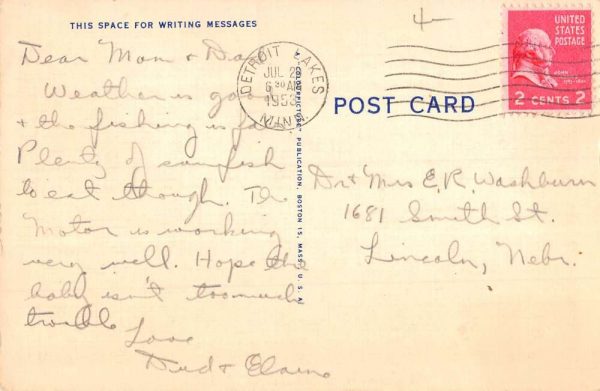 THIS SPACE FOR WRITING MESSAGES
Dear Mom & Dad
Weather is good
& the fishing is
Plenty of sunfish
to eat though. The
Motor is working
very well. Hope the
baby isn't too much
trouble
Love
Dud & Elaine
A "COLOURPICTURE" PUBLICATION, BOSTON 15, MASS., U. S. A.
DETROIT LAKES
JUL 2
6 30 AM
1953
MINN.
4
UNITED
STATES
POSTAGE
JOHN
2 CENTS 2
POST CARD
Dr & Mrs E. R. Washburn
1681 Smith St.
Lincoln, Nebr.